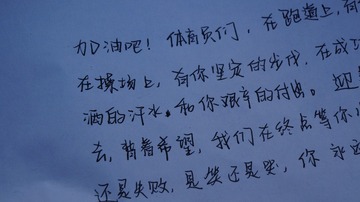 加油吧！体育员们，在跑道上，有
在操场上，有你坚定的步伐，在成功
洒的汗水。和你艰辛的付出。迎
去，背着希望，我们在终点等你
还是失败，是笑还是哭，你永远